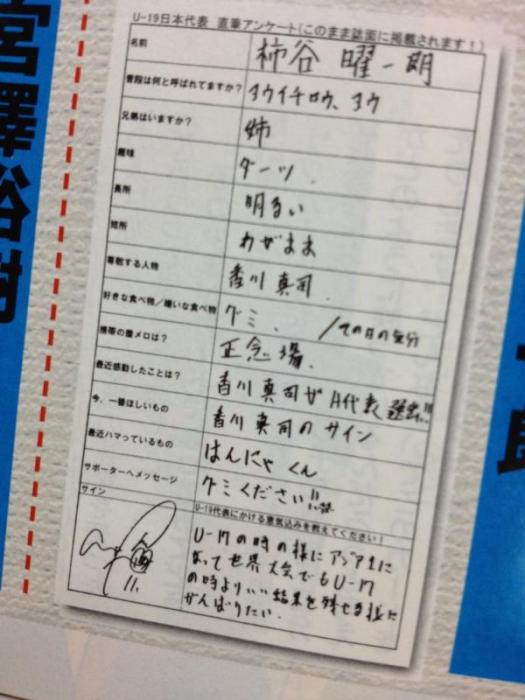 宮澤裕樹
U-19日本代表 直筆アンケート(このまま誌面に掲載されます！)
名前 柿谷 曜一朗
普段は何と呼ばれてますか？ ヨウイチロウ、ヨウ
兄弟はいますか？ 姉
趣味 ダーツ.
長所 明るい
短所 わがまま
尊敬する人物 香川真司.
好きな食べ物／嫌いな食べ物 グミ. /その日の気分
携帯の着メロは？ 正念場.
最近感動したことは？ 香川真司がA代表選出!!
今、一番ほしいもの 香川真司のサイン
最近ハマっているもの はんにゃくん
サポーターへメッセージ グミください!!
サイン
11.
U-19代表にかける意気込みを教えてください！
U-17の時の様にアジア1に
なって世界大会でもU-17
の時よりいい結果を残せる様に
がんばりたい.